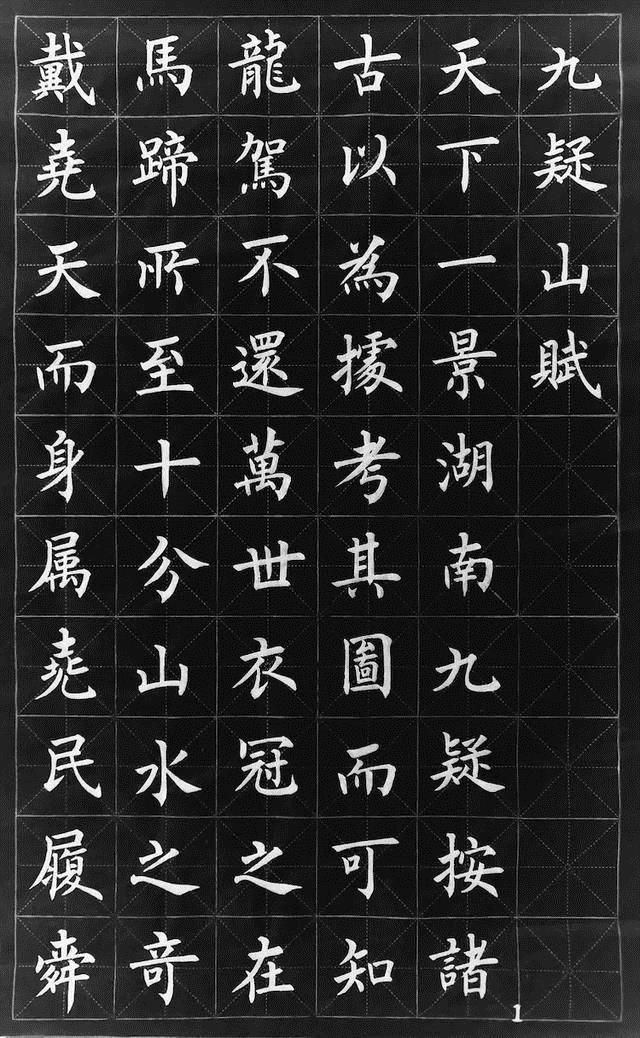 九疑山賦
天下一景湖南九疑按諸
古以為據考其圖而可知
龍駕不還萬世衣冠之在
馬蹄所至十分山水之奇
戴尭天而身属尭民履舜
1